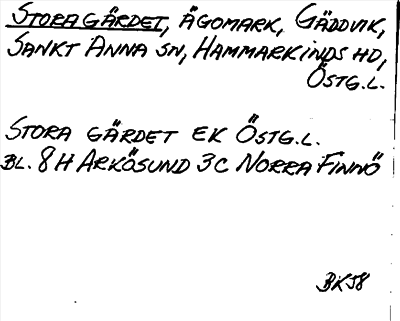 STORA GÄRDET, ÄGOMARK, GÄDDVIK,
SANKT ANNA SN, HAMMARKINDS HD,
ÖSTG.L.
STORA GÄRDET EK ÖSTG.L.
BL. 8 H ARKÖSUND 3C NORRA FINNÖ
BK58